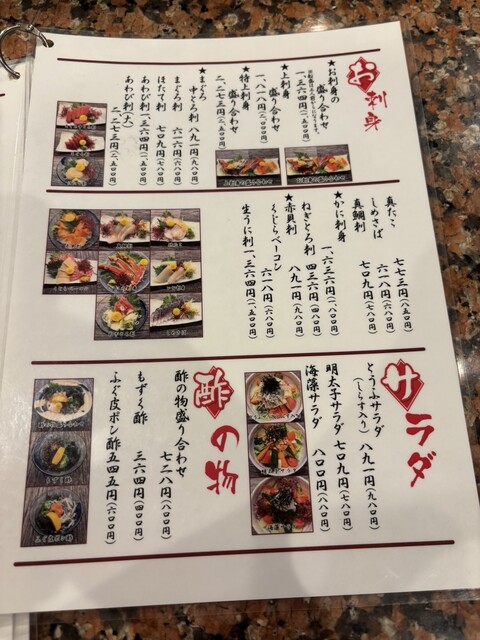 お刺身
★お刺身の盛り合わせ
一、三六四円(一、五〇〇円)
★上刺身盛り合わせ
一、八一八円(二、〇〇〇円)
★特上刺身盛り合わせ
二、二七三円(二、五〇〇円)
★まぐろ中とろ刺 八九一円(九八〇円)
まぐろ刺 六一六円(六八〇円)
ほたて刺 七〇九円(七八〇円)
あわび刺 一、三六四円(一、五〇〇円)
あわび刺(大)
二、二七三円(二、五〇〇円)
真たこ 七七三円(八五〇円)
しめさば 六一八円(六八〇円)
真鯛刺 七〇九円(七八〇円)
★かに刺身
一、六三六円(一、八〇〇円)
ねぎとろ刺 四三六円(四八〇円)
★赤貝刺 八九一円(九八〇円)
くじらベーコン
六一八円(六八〇円)
生うに刺 一、三六四円(一、五〇〇円)
サラダ
とうふサラダ
(しらす入り) 八九一円(九八〇円)
明太子サラダ 七〇九円(七八〇円)
海藻サラダ 八〇〇円(八八〇円)
酢の物
酢の物盛り合わせ
七二八円(八〇〇円)
もずく酢 三六四円(四〇〇円)
ふぐ皮ポン酢 五四五円(六〇〇円)